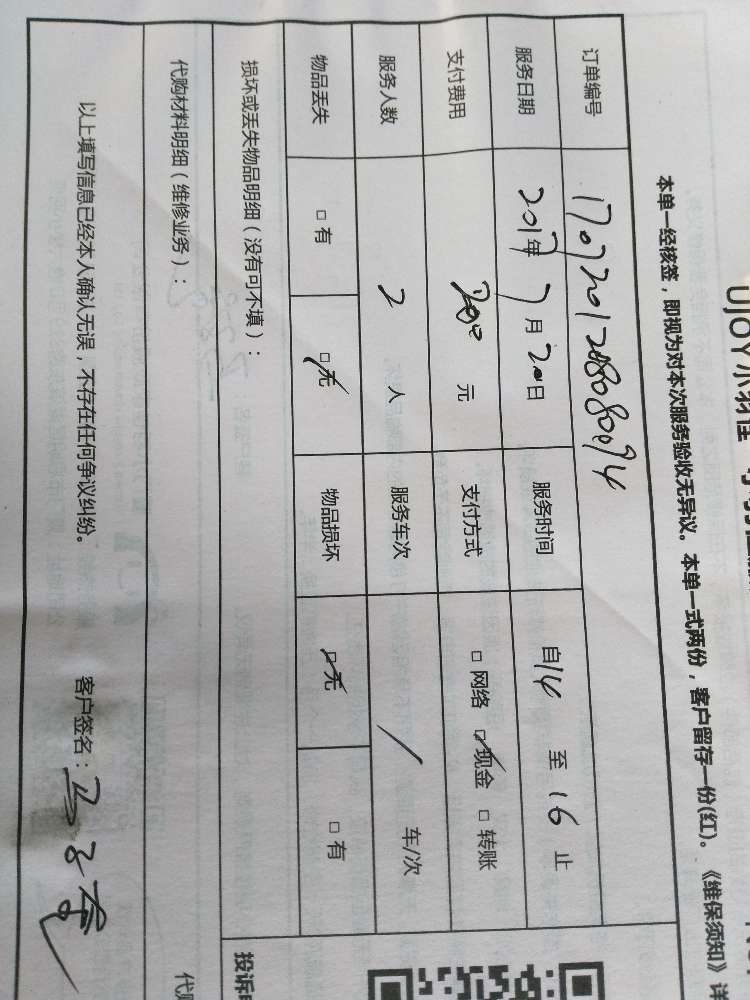 UJOY小羽佳
本单一经核签，即视为对本次服务验收无异议。本单一式两份，客户留存一份(红)。《维保须知》详
订单编号 170720120808094
服务日期 2017年7月20日 服务时间 自14 至16止
支付费用 200 元 支付方式 □网络 ☑现金 □转账
服务人数 2 人 服务车次 / 车/次
物品丢失 □有 ☑无 物品损坏 ☑无 □有
损坏或丢失物品明细（没有可不填）：
投诉
代购材料明细（维修业务）：
代
以上填写信息已经本人确认无误，不存在任何争议纠纷。 客户签名：